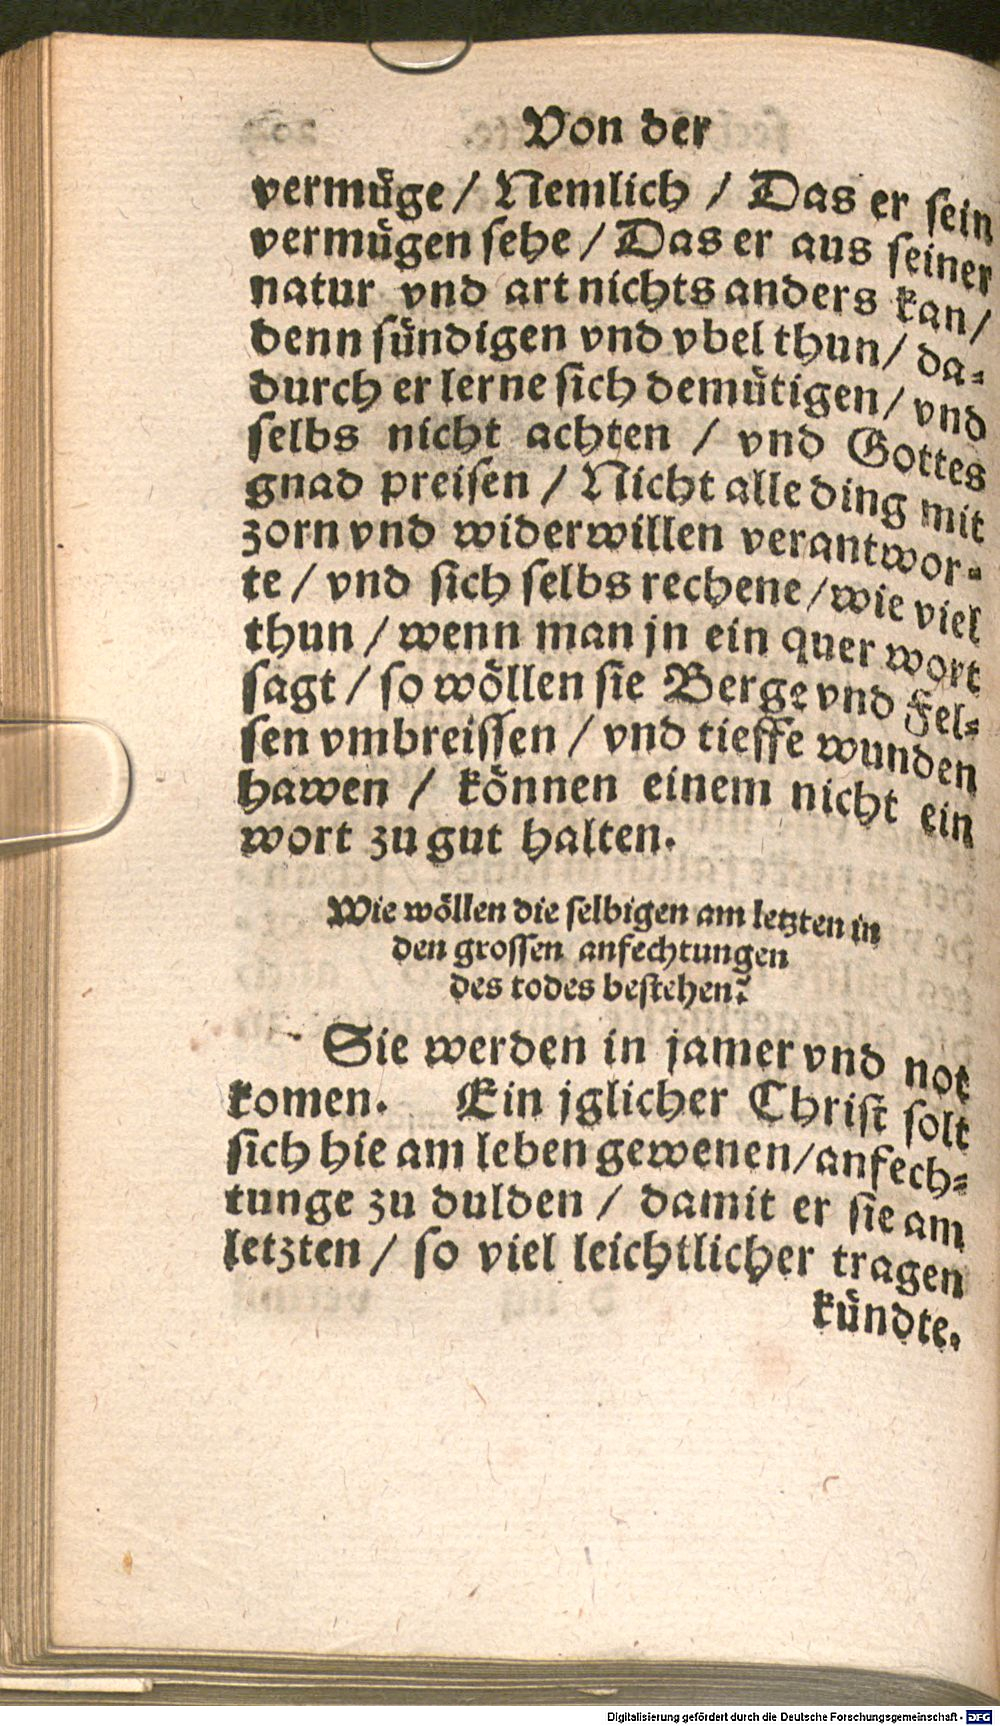 Von der
vermüge / Nemlich / Das er sein
vermügen sehe / Das er aus seiner
natur vnd art nichts anders kan /
denn sündigen vnd vbel thun / da-
durch er lerne sich demütigen / vnd
selbs nicht achten / vnd Gottes
gnad preisen / Nicht alle ding mit
zorn vnd widerwillen verantwor-
te / vnd sich selbs rechene / wie viel
thun / wenn man jn ein quer wort
sagt / so wöllen sie Berge vnd Fel-
sen vmbreissen / vnd tieffe wunden
hawen / können einem nicht ein
wort zu gut halten.
Wie wöllen die selbigen am letzten in
den grossen anfechtungen
des todes bestehen?
Sie werden in jamer vnd not
komen. Ein jglicher Christ solt
sich hie am leben gewenen / anfech-
tunge zu dulden / damit er sie am
letzten / so viel leichtlicher tragen
kündte.
Digitalisierung gefördert durch die Deutsche Forschungsgemeinschaft - DFG